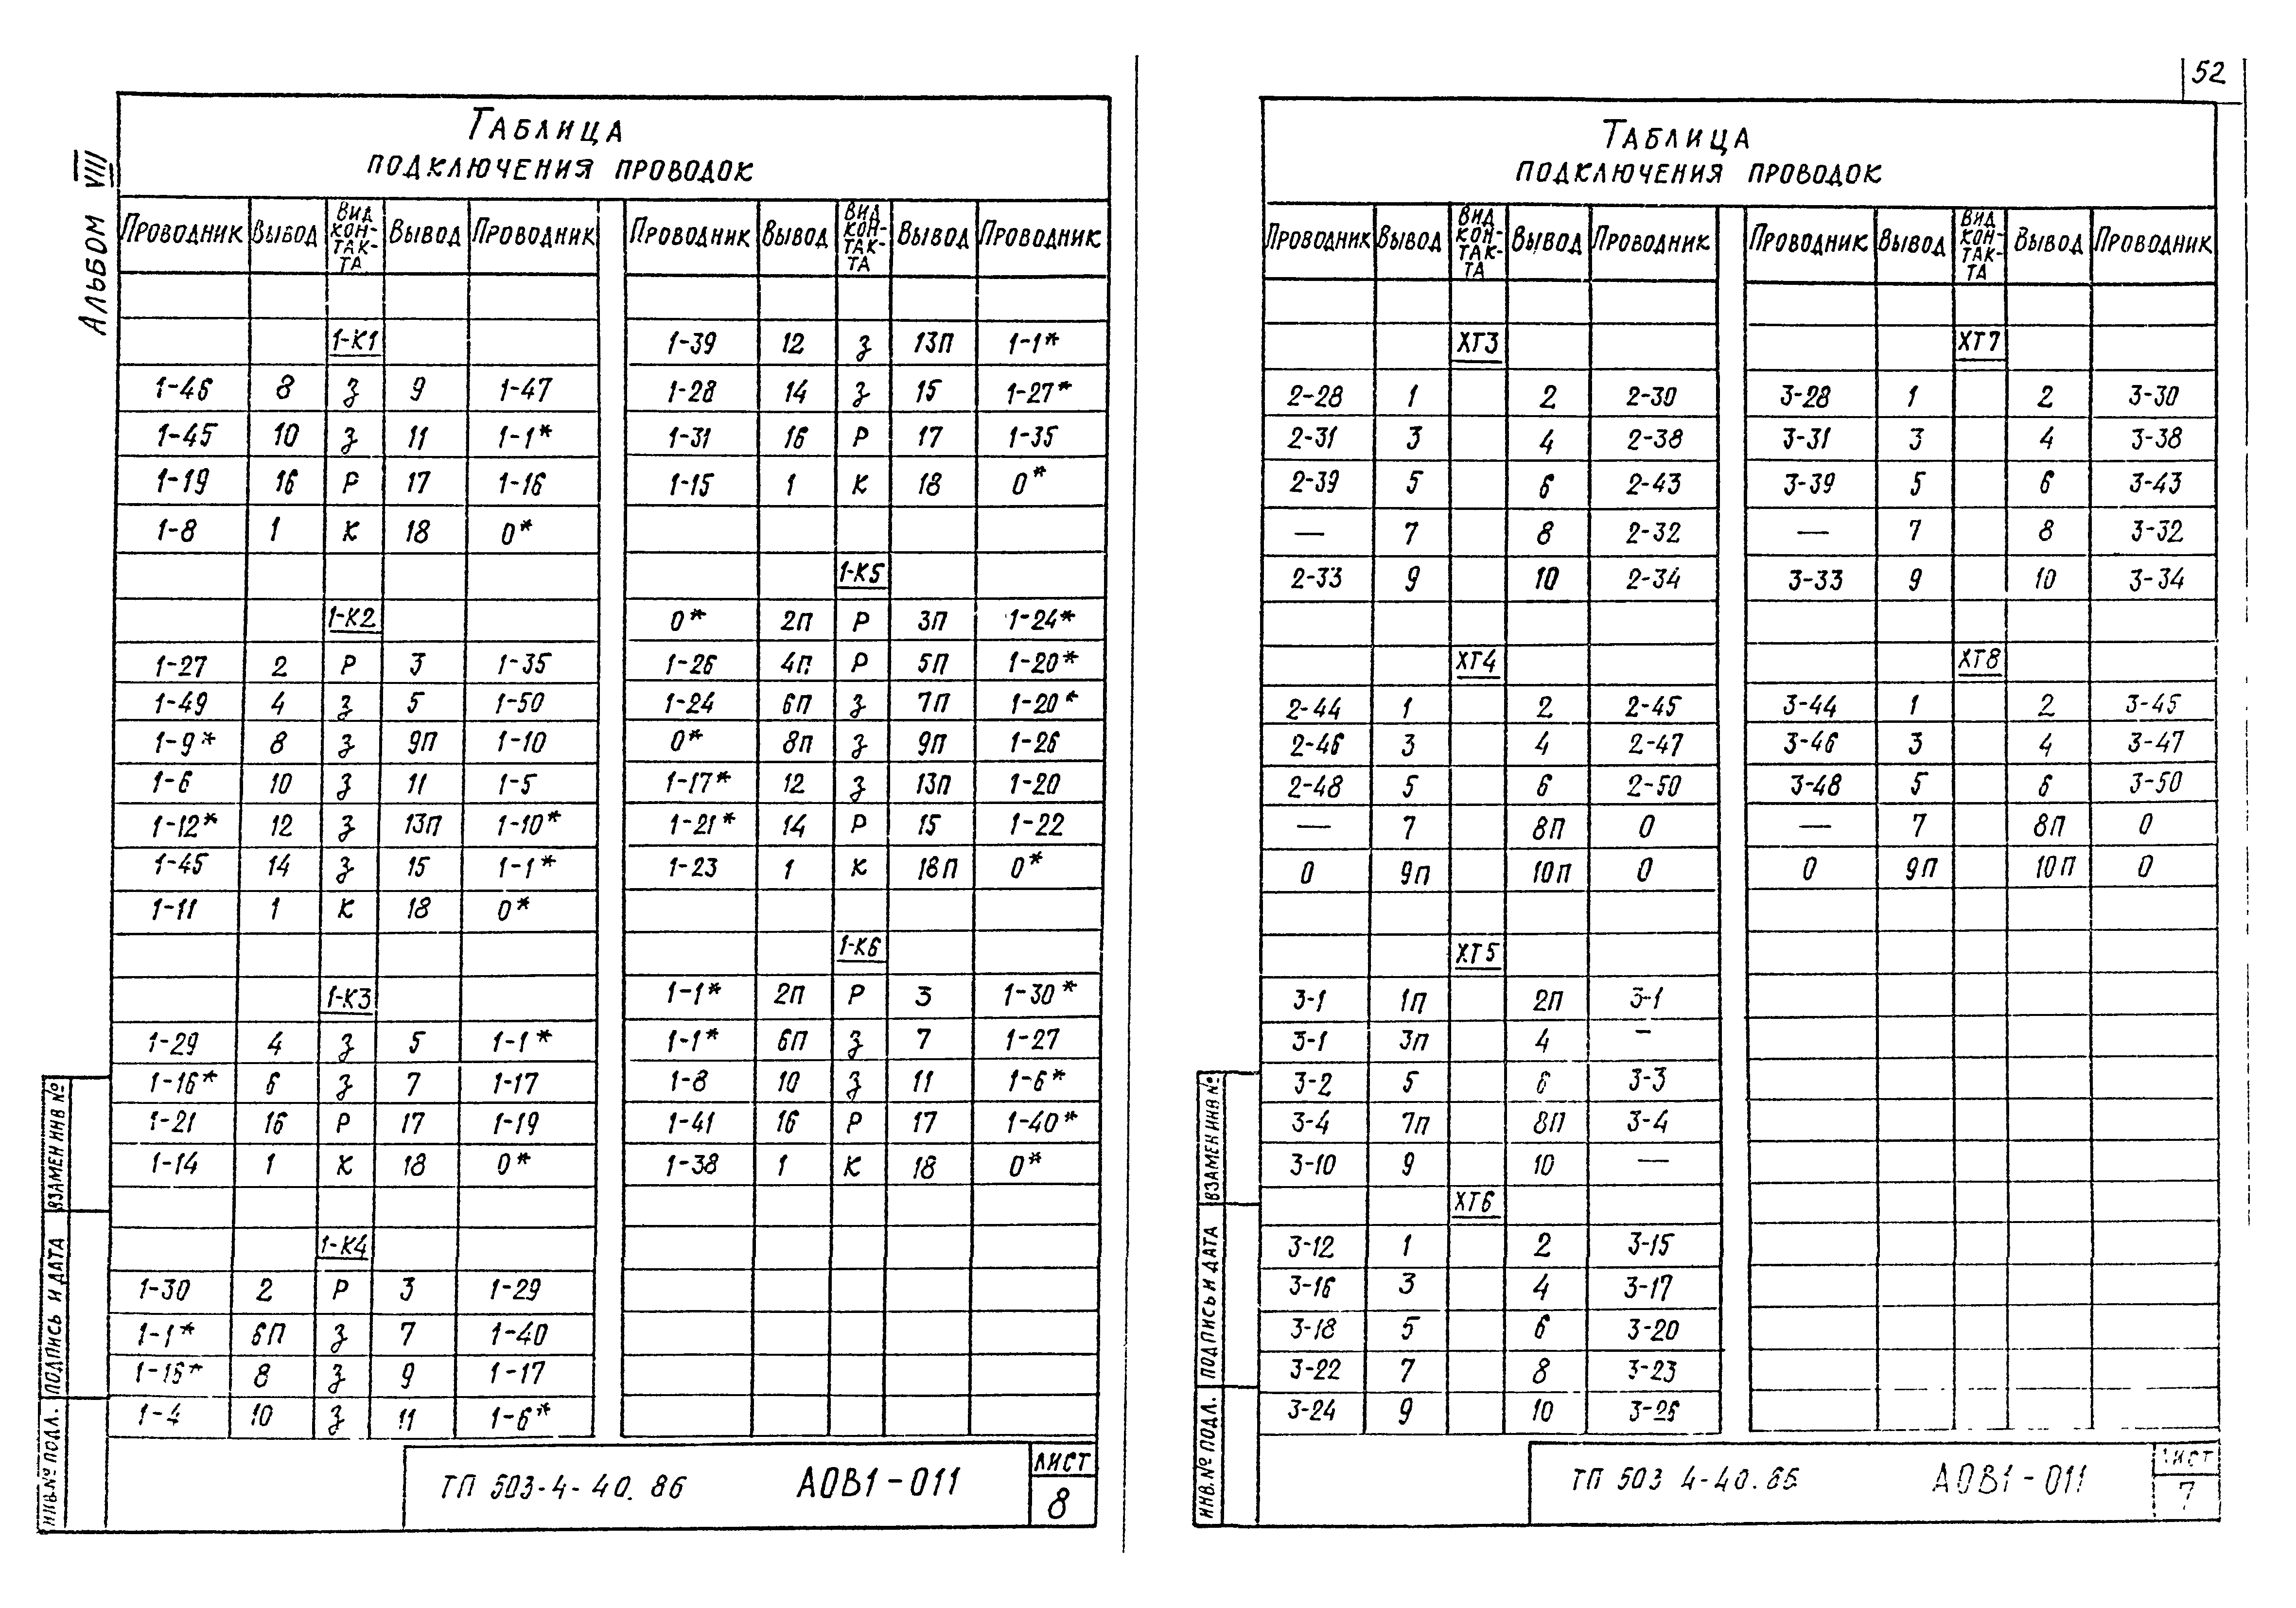 52
АЛЬБОМ VIII
ТАБЛИЦА
ПОДКЛЮЧЕНИЯ ПРОВОДОК
ПРОВОДНИК ВЫВОД ВИД КОН-ТАК-ТА ВЫВОД ПРОВОДНИК
1-К1
1-46 8 З 9 1-47
1-45 10 З 11 1-1*
1-19 16 Р 17 1-16
1-8 1 К 18 0*
1-К2
1-27 2 Р 3 1-35
1-49 4 З 5 1-50
1-9* 8 З 9П 1-10
1-6 10 З 11 1-5
1-12* 12 З 13П 1-10*
1-45 14 З 15 1-1*
1-11 1 К 18 0*
1-К3
1-29 4 З 5 1-1*
1-16* 6 З 7 1-17
1-21 16 Р 17 1-19
1-14 1 К 18 0*
1-К4
1-30 2 Р 3 1-29
1-1* 6П З 7 1-40
1-16* 8 З 9 1-17
1-4 10 З 11 1-6*
ПРОВОДНИК ВЫВОД ВИД КОН-ТАК-ТА ВЫВОД ПРОВОДНИК
1-39 12 З 13П 1-1*
1-28 14 З 15 1-27*
1-31 16 Р 17 1-35
1-15 1 К 18 0*
1-К5
0* 2П Р 3П 1-24*
1-26 4П Р 5П 1-20*
1-24 6П З 7П 1-20*
0* 8П З 9П 1-26
1-17* 12 З 13П 1-20
1-21* 14 Р 15 1-22
1-23 1 К 18П 0*
1-К6
1-1* 2П Р 3 1-30*
1-1* 6П З 7 1-27
1-8 10 З 11 1-6*
1-41 16 Р 17 1-40*
1-38 1 К 18 0*
ВЗАМЕН ИНВ №
ПОДПИСЬ И ДАТА
ИНВ.№ ПОДЛ.
ТП 503-4-40.86 АОВ1-011 ЛИСТ
8
ТАБЛИЦА
ПОДКЛЮЧЕНИЯ ПРОВОДОК
ПРОВОДНИК ВЫВОД ВИД КОН-ТАК-ТА ВЫВОД ПРОВОДНИК
ХТ3
2-28 1 2 2-30
2-31 3 4 2-38
2-39 5 6 2-43
— 7 8 2-32
2-33 9 10 2-34
ХТ4
2-44 1 2 2-45
2-46 3 4 2-47
2-48 5 6 2-50
— 7 8П 0
0 9П 10П 0
ХТ5
3-1 1П 2П 3-1
3-1 3П 4 —
3-2 5 6 3-3
3-4 7П 8П 3-4
3-10 9 10 —
ХТ6
3-12 1 2 3-15
3-16 3 4 3-17
3-18 5 6 3-20
3-22 7 8 3-23
3-24 9 10 3-26
ПРОВОДНИК ВЫВОД ВИД КОН-ТАК-ТА ВЫВОД ПРОВОДНИК
ХТ7
3-28 1 2 3-30
3-31 3 4 3-38
3-39 5 6 3-43
— 7 8 3-32
3-33 9 10 3-34
ХТ8
3-44 1 2 3-45
3-46 3 4 3-47
3-48 5 6 3-50
— 7 8П 0
0 9П 10П 0
ВЗАМЕН ИНВ №
ПОДПИСЬ И ДАТА
ИНВ.№ ПОДЛ.
ТП 503 4-40.86 АОВ1-011 ЛИСТ
7